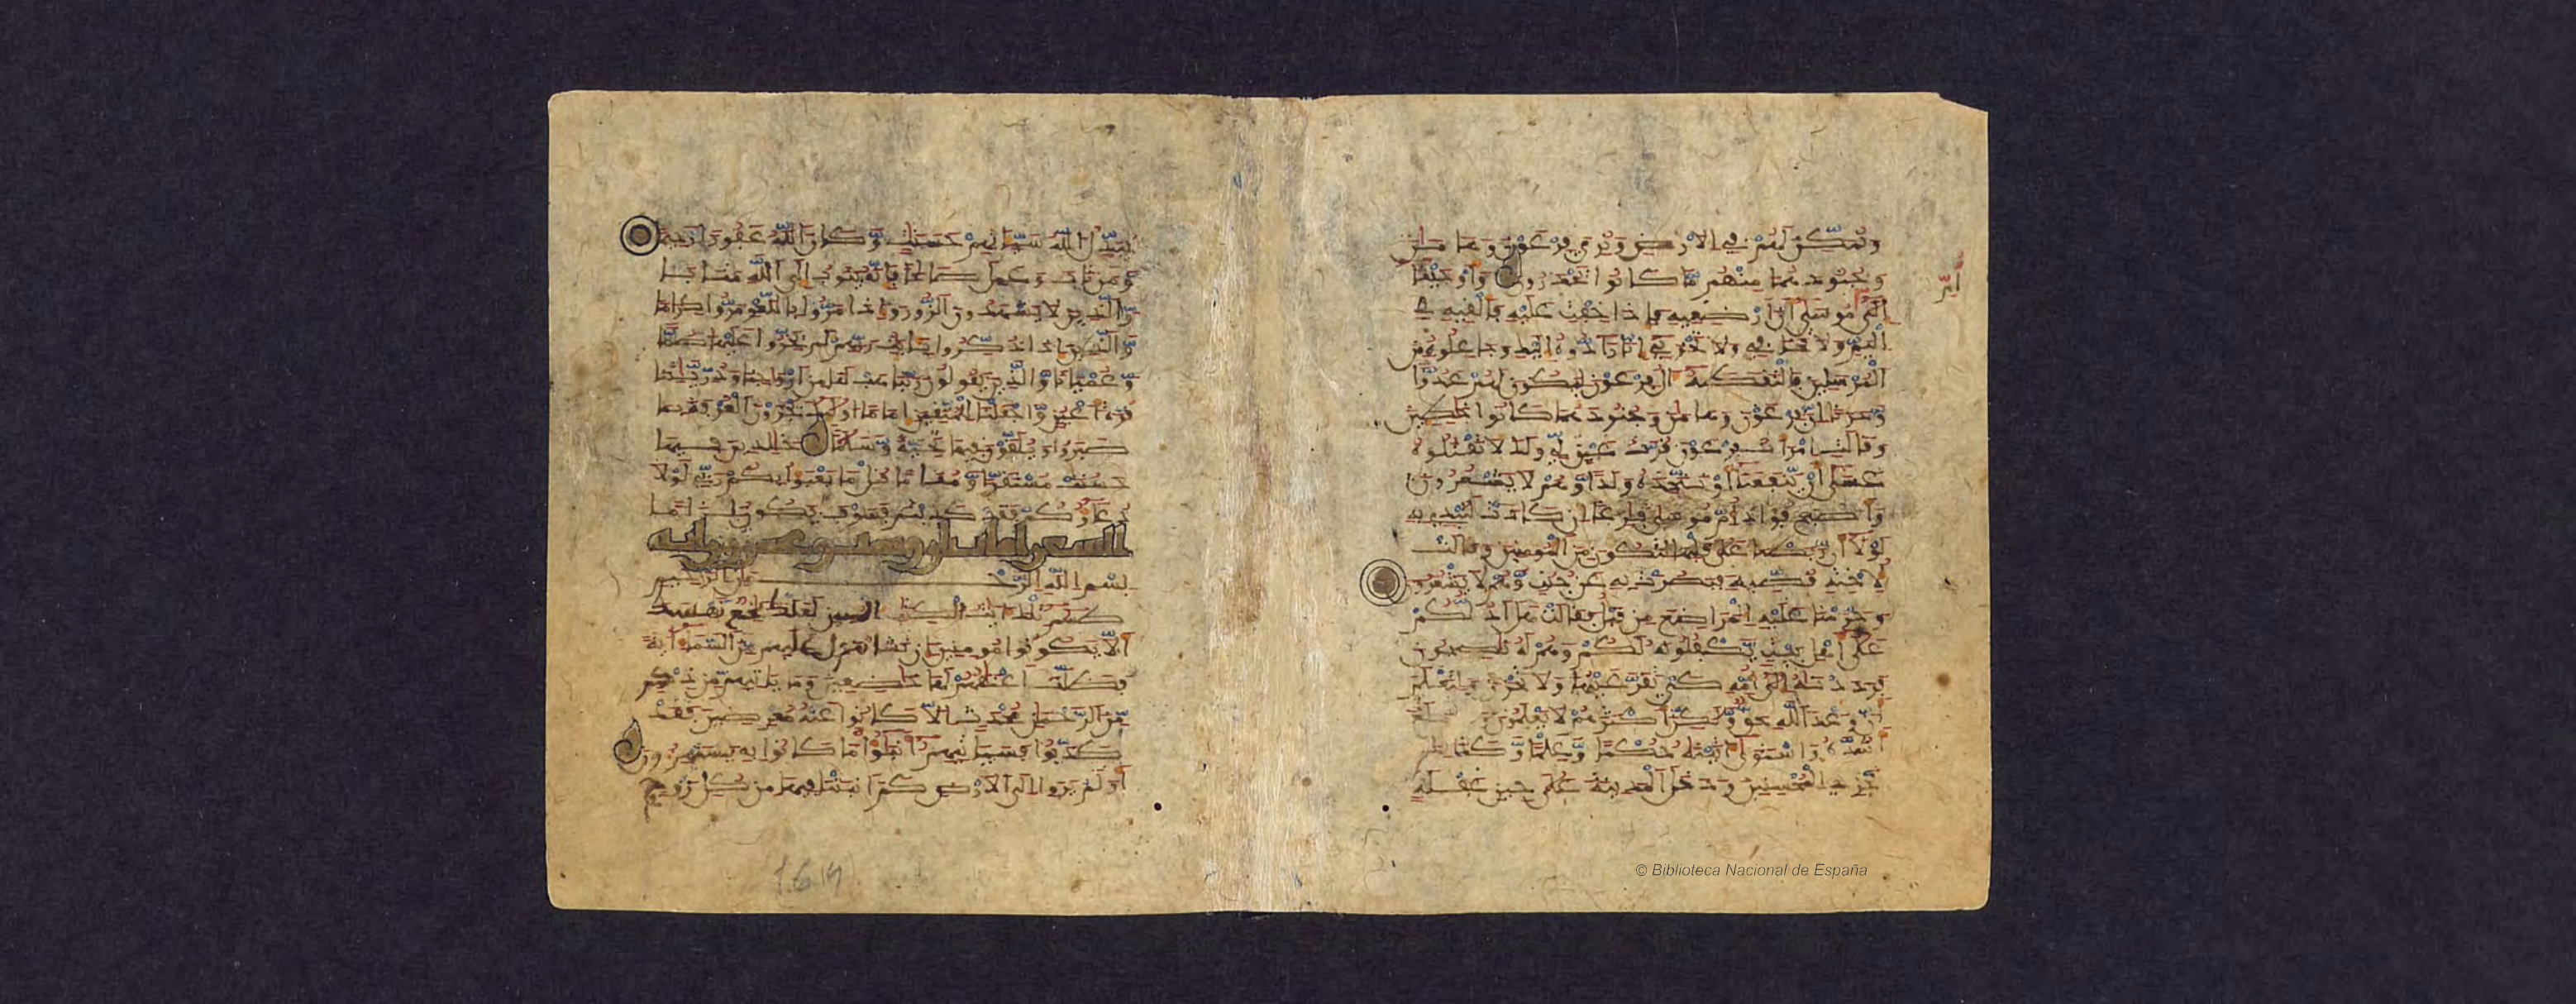 ونمكن لهم في الارض ونري فرعون وهامن
وجنودهما منهم ما كانوا يحذرون واوحينا
الى ام موسى ان ارضعيه فاذا خفت عليه فالقيه في
اليم ولا تخافي ولا تحزني انا رادوه اليك وجاعلوه من
المرسلين فالتقطه ال فرعون ليكون لهم عدوا
وحزنا ان فرعون وهامن وجنودهما كانوا خطين
وقالت امرات فرعون قرت عين لي ولك لا تقتلوه
عسى ان ينفعنا او نتخذه ولدا وهم لا يشعرون
واصبح فواد ام موسى فرغا ان كادت لتبدي به
لولا ان ربطنا على قلبها لتكون من المومنين وقالت
لاخته قصيه فبصرت به عن جنب وهم لا يشعرون
وحرمنا عليه المراضع من قبل فقالت هل ادلكم
على اهل بيت يكفلونه لكم وهم له نصحون
فرددنه الى امه كي تقر عينها ولا تحزن ولتعلم
ان وعد الله حق ولكن اكثرهم لا يعلمون بلغ
اشده واستوى اتينه حكما وعلما وكذلك
نجزي المحسنين ودخل المدينة على حين غفلة
© Biblioteca Nacional de España
يبدل الله سياتهم حسنت وكان الله غفورا رحيما
ومن تاب وعمل صالحا فانه يتوب الى الله متابا
والذين لا يشهدون الزور واذا مروا باللغو مروا كراما
والذين اذا ذكروا بايت ربهم لم يخروا عليها صما
وعميانا والذين يقولون ربنا هب لنا من ازوجنا وذريتنا
قرة اعين واجعلنا للمتقين اماما اوليك يجزون الغرفة بما
صبروا ويلقون فيها تحية وسلما خلدين فيها
حسنت مستقرا ومقاما قل ما يعبوا بكم ربي لولا
دعاوكم فقد كذبتم فسوف يكون لزاما
الشعرا مايتان وست وعشرون اية
بسم الله الرحمن الرحيم
طسم تلك ايت الكتب المبين لعلك بخع نفسك
الا يكونوا مومنين ان نشا ننزل عليهم من السما اية
فظلت اعنقهم لها خضعين وما ياتيهم من ذكر
من الرحمن محدث الا كانوا عنه معرضين فقد
كذبوا فسياتيهم انبوا ما كانوا به يستهزون
اولم يروا الى الارض كم انبتنا فيها من كل زوج